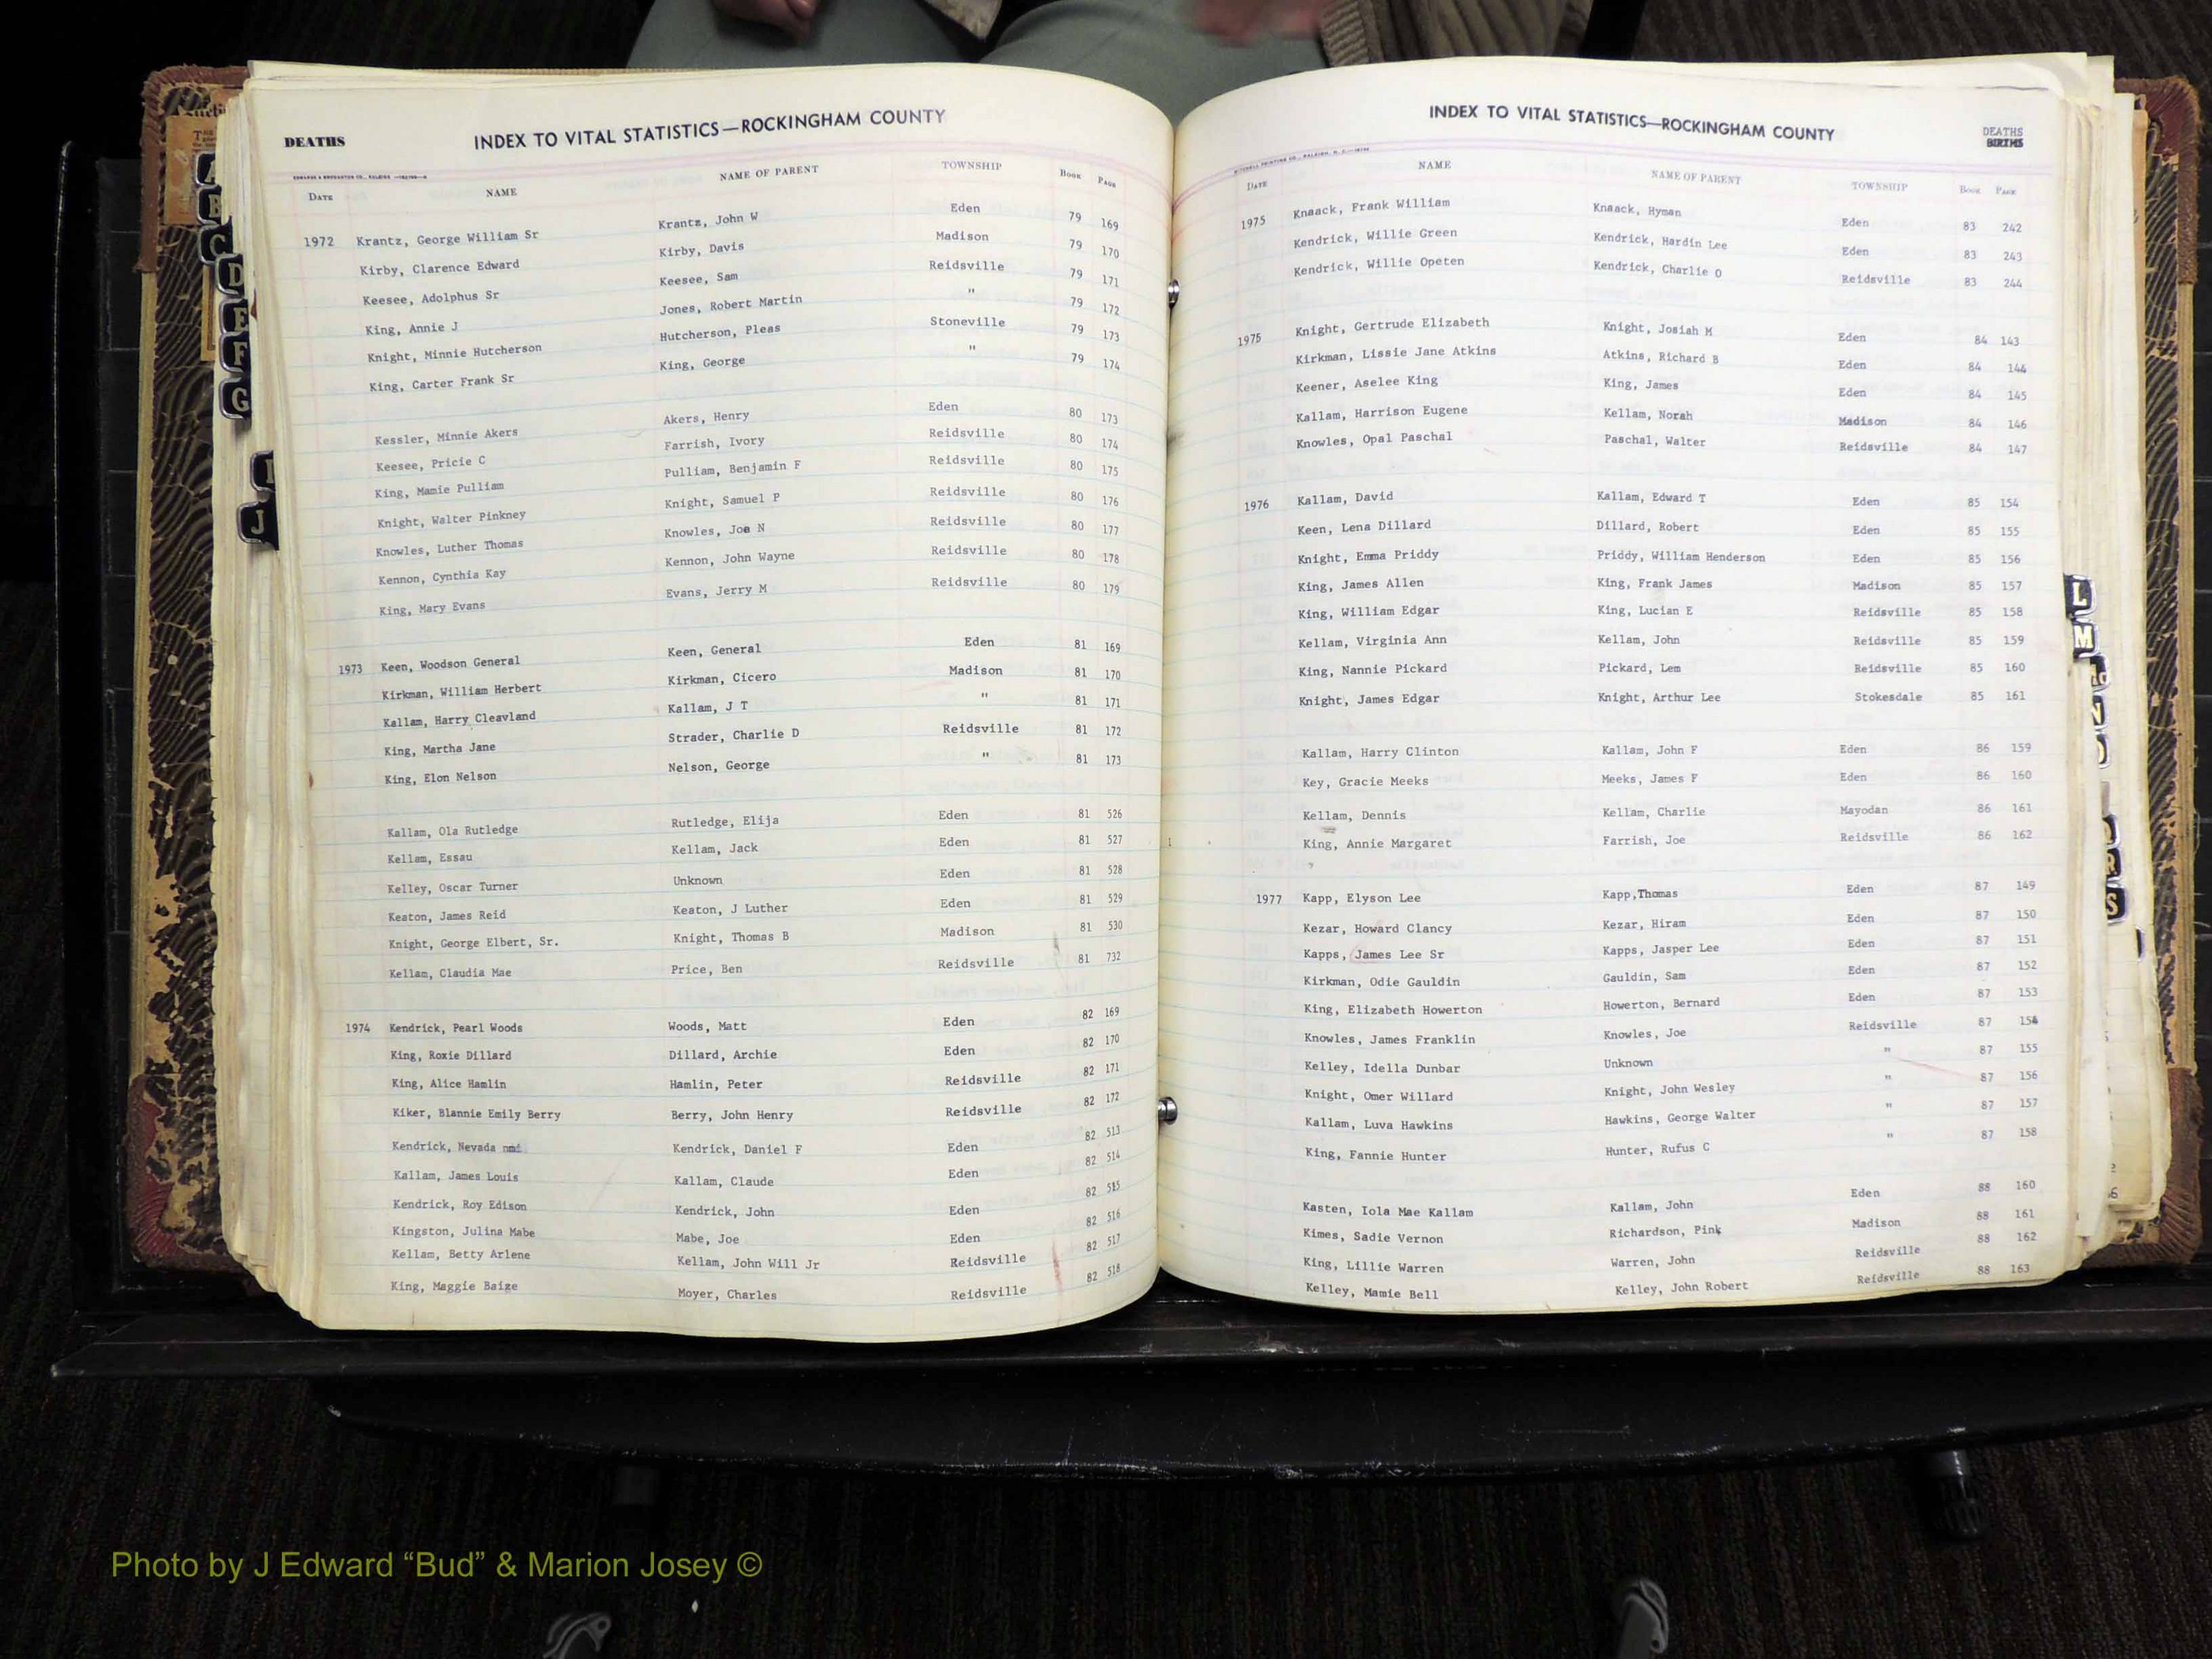 DEATHS
INDEX TO VITAL STATISTICS—ROCKINGHAM COUNTY
DATE NAME NAME OF PARENT TOWNSHIP BOOK PAGE
1972 Krantz, George William Sr Krantz, John W Eden 79 169
Kirby, Clarence Edward Kirby, Davis Madison 79 170
Keesee, Adolphus Sr Keesee, Sam Reidsville 79 171
King, Annie J Jones, Robert Martin " 79 172
Knight, Minnie Hutcherson Hutcherson, Pleas Stoneville 79 173
King, Carter Frank Sr King, George " 79 174
Kessler, Minnie Akers Akers, Henry Eden 80 173
Keesee, Pricie C Farrish, Ivory Reidsville 80 174
King, Mamie Pulliam Pulliam, Benjamin F Reidsville 80 175
Knight, Walter Pinkney Knight, Samuel P Reidsville 80 176
Knowles, Luther Thomas Knowles, Joe N Reidsville 80 177
Kennon, Cynthia Kay Kennon, John Wayne Reidsville 80 178
King, Mary Evans Evans, Jerry M Reidsville 80 179
1973 Keen, Woodson General Keen, General Eden 81 169
Kirkman, William Herbert Kirkman, Cicero Madison 81 170
Kallam, Harry Cleavland Kallam, J T " 81 171
King, Martha Jane Strader, Charlie D Reidsville 81 172
King, Elon Nelson Nelson, George " 81 173
Kallam, Ola Rutledge Rutledge, Elija Eden 81 526
Kellam, Essau Kellam, Jack Eden 81 527
Kelley, Oscar Turner Unknown Eden 81 528
Keaton, James Reid Keaton, J Luther Eden 81 529
Knight, George Elbert, Sr. Knight, Thomas B Madison 81 530
Kellam, Claudia Mae Price, Ben Reidsville 81 732
1974 Kendrick, Pearl Woods Woods, Matt Eden 82 169
King, Roxie Dillard Dillard, Archie Eden 82 170
King, Alice Hamlin Hamlin, Peter Reidsville 82 171
Kiker, Blannie Emily Berry Berry, John Henry Reidsville 82 172
Kendrick, Nevada nmi Kendrick, Daniel F Eden 82 513
Kallam, James Louis Kallam, Claude Eden 82 514
Kendrick, Roy Edison Kendrick, John Eden 82 515
Kingston, Julina Mabe Mabe, Joe Eden 82 516
Kellam, Betty Arlene Kellam, John Will Jr Reidsville 82 517
King, Maggie Baize Moyer, Charles Reidsville 82 518
INDEX TO VITAL STATISTICS—ROCKINGHAM COUNTY
DEATHS
BIRTHS
DATE NAME NAME OF PARENT TOWNSHIP BOOK PAGE
1975 Knaack, Frank William Knaack, Hyman Eden 83 242
Kendrick, Willie Green Kendrick, Hardin Lee Eden 83 243
Kendrick, Willie Opeten Kendrick, Charlie O Reidsville 83 244
1975 Knight, Gertrude Elizabeth Knight, Josiah M Eden 84 143
Kirkman, Lissie Jane Atkins Atkins, Richard B Eden 84 144
Keener, Aselee King King, James Eden 84 145
Kallam, Harrison Eugene Kellam, Norah Madison 84 146
Knowles, Opal Paschal Paschal, Walter Reidsville 84 147
1976 Kallam, David Kallam, Edward T Eden 85 154
Keen, Lena Dillard Dillard, Robert Eden 85 155
Knight, Emma Priddy Priddy, William Henderson Eden 85 156
King, James Allen King, Frank James Madison 85 157
King, William Edgar King, Lucian E Reidsville 85 158
Kellam, Virginia Ann Kellam, John Reidsville 85 159
King, Nannie Pickard Pickard, Lem Reidsville 85 160
Knight, James Edgar Knight, Arthur Lee Stokesdale 85 161
Kallam, Harry Clinton Kallam, John F Eden 86 159
Key, Gracie Meeks Meeks, James F Eden 86 160
Kellam, Dennis Kellam, Charlie Mayodan 86 161
King, Annie Margaret Farrish, Joe Reidsville 86 162
1977 Kapp, Elyson Lee Kapp,Thomas Eden 87 149
Kezar, Howard Clancy Kezar, Hiram Eden 87 150
Kapps, James Lee Sr Kapps, Jasper Lee Eden 87 151
Kirkman, Odie Gauldin Gauldin, Sam Eden 87 152
King, Elizabeth Howerton Howerton, Bernard Eden 87 153
Knowles, James Franklin Knowles, Joe Reidsville 87 154
Kelley, Idella Dunbar Unknown " 87 155
Knight, Omer Willard Knight, John Wesley " 87 156
Kallam, Luva Hawkins Hawkins, George Walter " 87 157
King, Fannie Hunter Hunter, Rufus C " 87 158
Kasten, Iola Mae Kallam Kallam, John Eden 88 160
Kimes, Sadie Vernon Richardson, Pink Madison 88 161
King, Lillie Warren Warren, John Reidsville 88 162
Kelley, Mamie Bell Kelley, John Robert Reidsville 88 163
A
B
C
D
E
F
G
J
L
M
N
R
S
Photo by J Edward “Bud” & Marion Josey ©